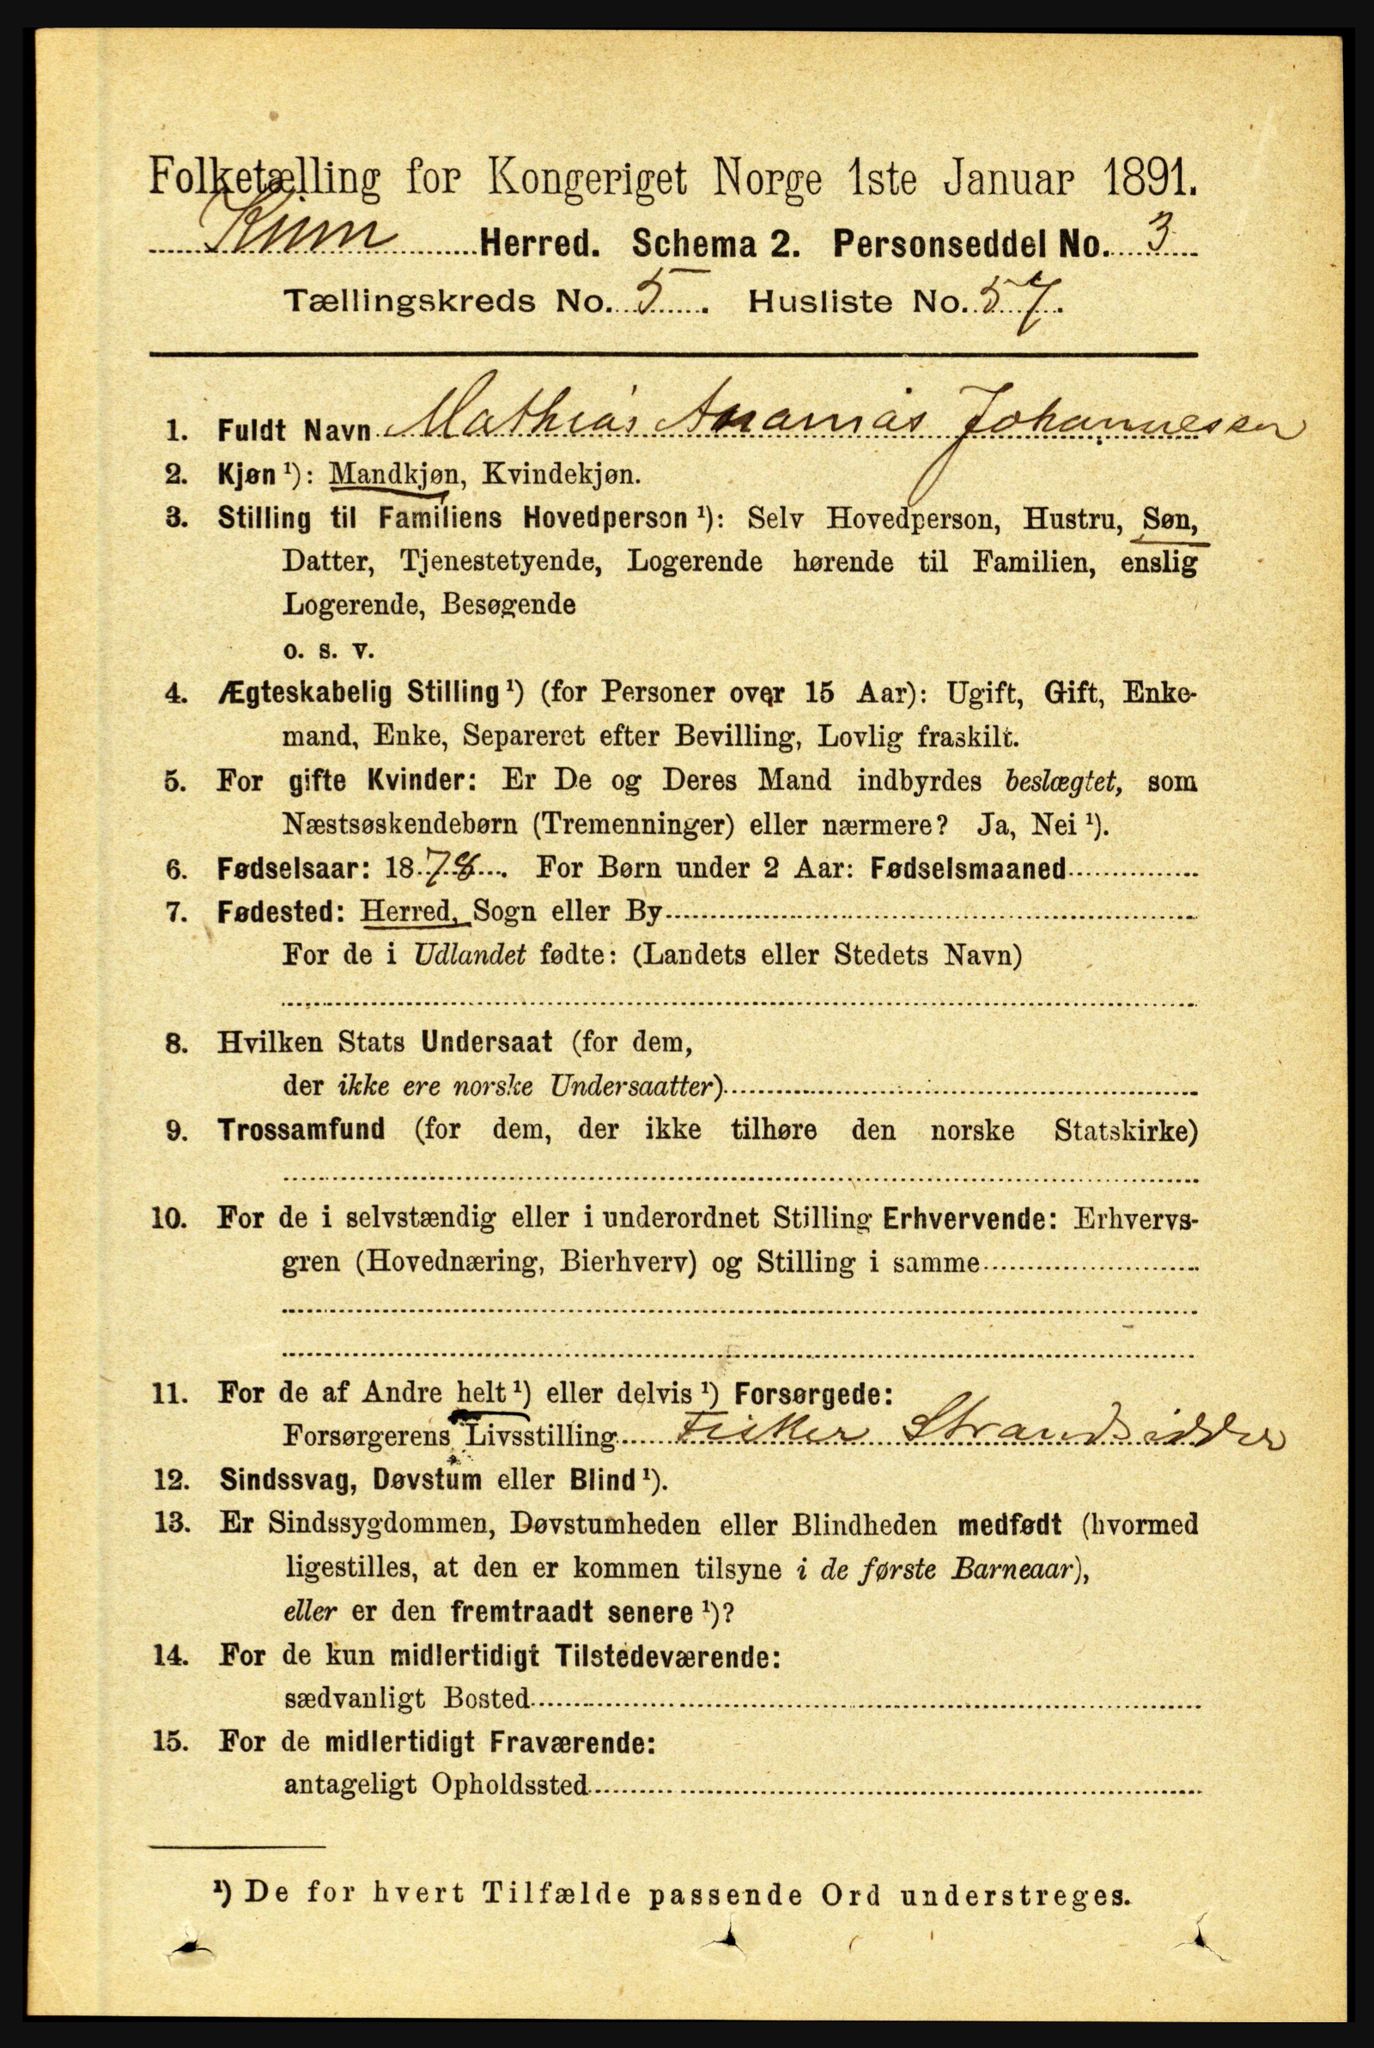 Folketælling for Kongeriget Norge 1ste Januar 1891.
Kinn Herred. Schema 2. Personseddel No. 3
Tællingskreds No. 5. Husliste No. 57.
1. Fuldt Navn Mathias Ananias Johannessen
2. Kjøn ¹): Mandkjøn, Kvindekjøn.
3. Stilling til Familiens Hovedperson ¹): Selv Hovedperson, Hustru, Søn,
Datter, Tjenestetyende, Logerende hørende til Familien, enslig
Logerende, Besøgende
o. s. v.
4. Ægteskabelig Stilling ¹) (for Personer over 15 Aar): Ugift, Gift, Enke-
mand, Enke, Separeret efter Bevilling, Lovlig fraskilt.
5. For gifte Kvinder: Er De og Deres Mand indbyrdes beslægtet, som
Næstsøskendebørn (Tremenninger) eller nærmere? Ja, Nei ¹).
6. Fødselsaar: 1878. For Børn under 2 Aar: Fødselsmaaned
7. Fødested: Herred, Sogn eller By
For de i Udlandet fødte: (Landets eller Stedets Navn)
8. Hvilken Stats Undersaat (for dem,
der ikke ere norske Undersaatter)
9. Trossamfund (for dem, der ikke tilhøre den norske Statskirke)
10. For de i selvstændig eller i underordnet Stilling Erhvervende: Erhvervs-
gren (Hovednæring, Bierhverv) og Stilling i samme
11. For de af Andre helt ¹) eller delvis ¹) Forsørgede:
Forsørgerens Livsstilling Fisker Strandsidder
12. Sindssvag, Døvstum eller Blind ¹).
13. Er Sindssygdommen, Døvstumheden eller Blindheden medfødt (hvormed
ligestilles, at den er kommen tilsyne i de første Barneaar),
eller er den fremtraadt senere ¹)?
14. For de kun midlertidigt Tilstedeværende:
sædvanligt Bosted
15. For de midlertidigt Fraværende:
antageligt Opholdssted
¹) De for hvert Tilfælde passende Ord understreges.